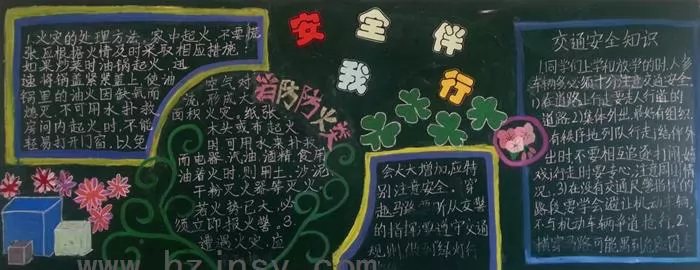 安全伴
我行
1.火灾的处理方法。家中起火,不要慌
张应根据火情及时采取相应措施!
如果炒菜时油锅起火,迅
速将锅盖紧紧盖上,使油
锅里的油火因缺氧而
熄灭,不可用水扑救,
房间内起火时,不能
轻易打开门窗,以免
空气对
流,形成大
面积火灾。纸张、
木头或布起火
时可用水来扑救,
而电器、汽油、酒精、食用
油着火时,则用土、沙泥、
干粉灭火器等灭火。
若火势已大,必
须立即报火警。3.
遭遇火灾,应
消防防火
会大大增加,应特
别注意安全。穿
越马路,要听从交警
的指挥,要遵守交通
规则,做到绿灯行
交通安全知识
1.同学们上学和放学的时
车辆多必须十分注意交通安全
1)在道路上行走,要走人行道的
道路2)集体外出,最好有组织
有秩序地列队行走;结伴外
出时不要相互追逐、打闹、嬉
戏;行走时要专心,注意周围情
况。3)在没有交通民警指挥的
路段,要学会避让机动车辆,
不与机动车辆争道抢行。2.
横穿马路可能遇到
www.hzjnsy.com